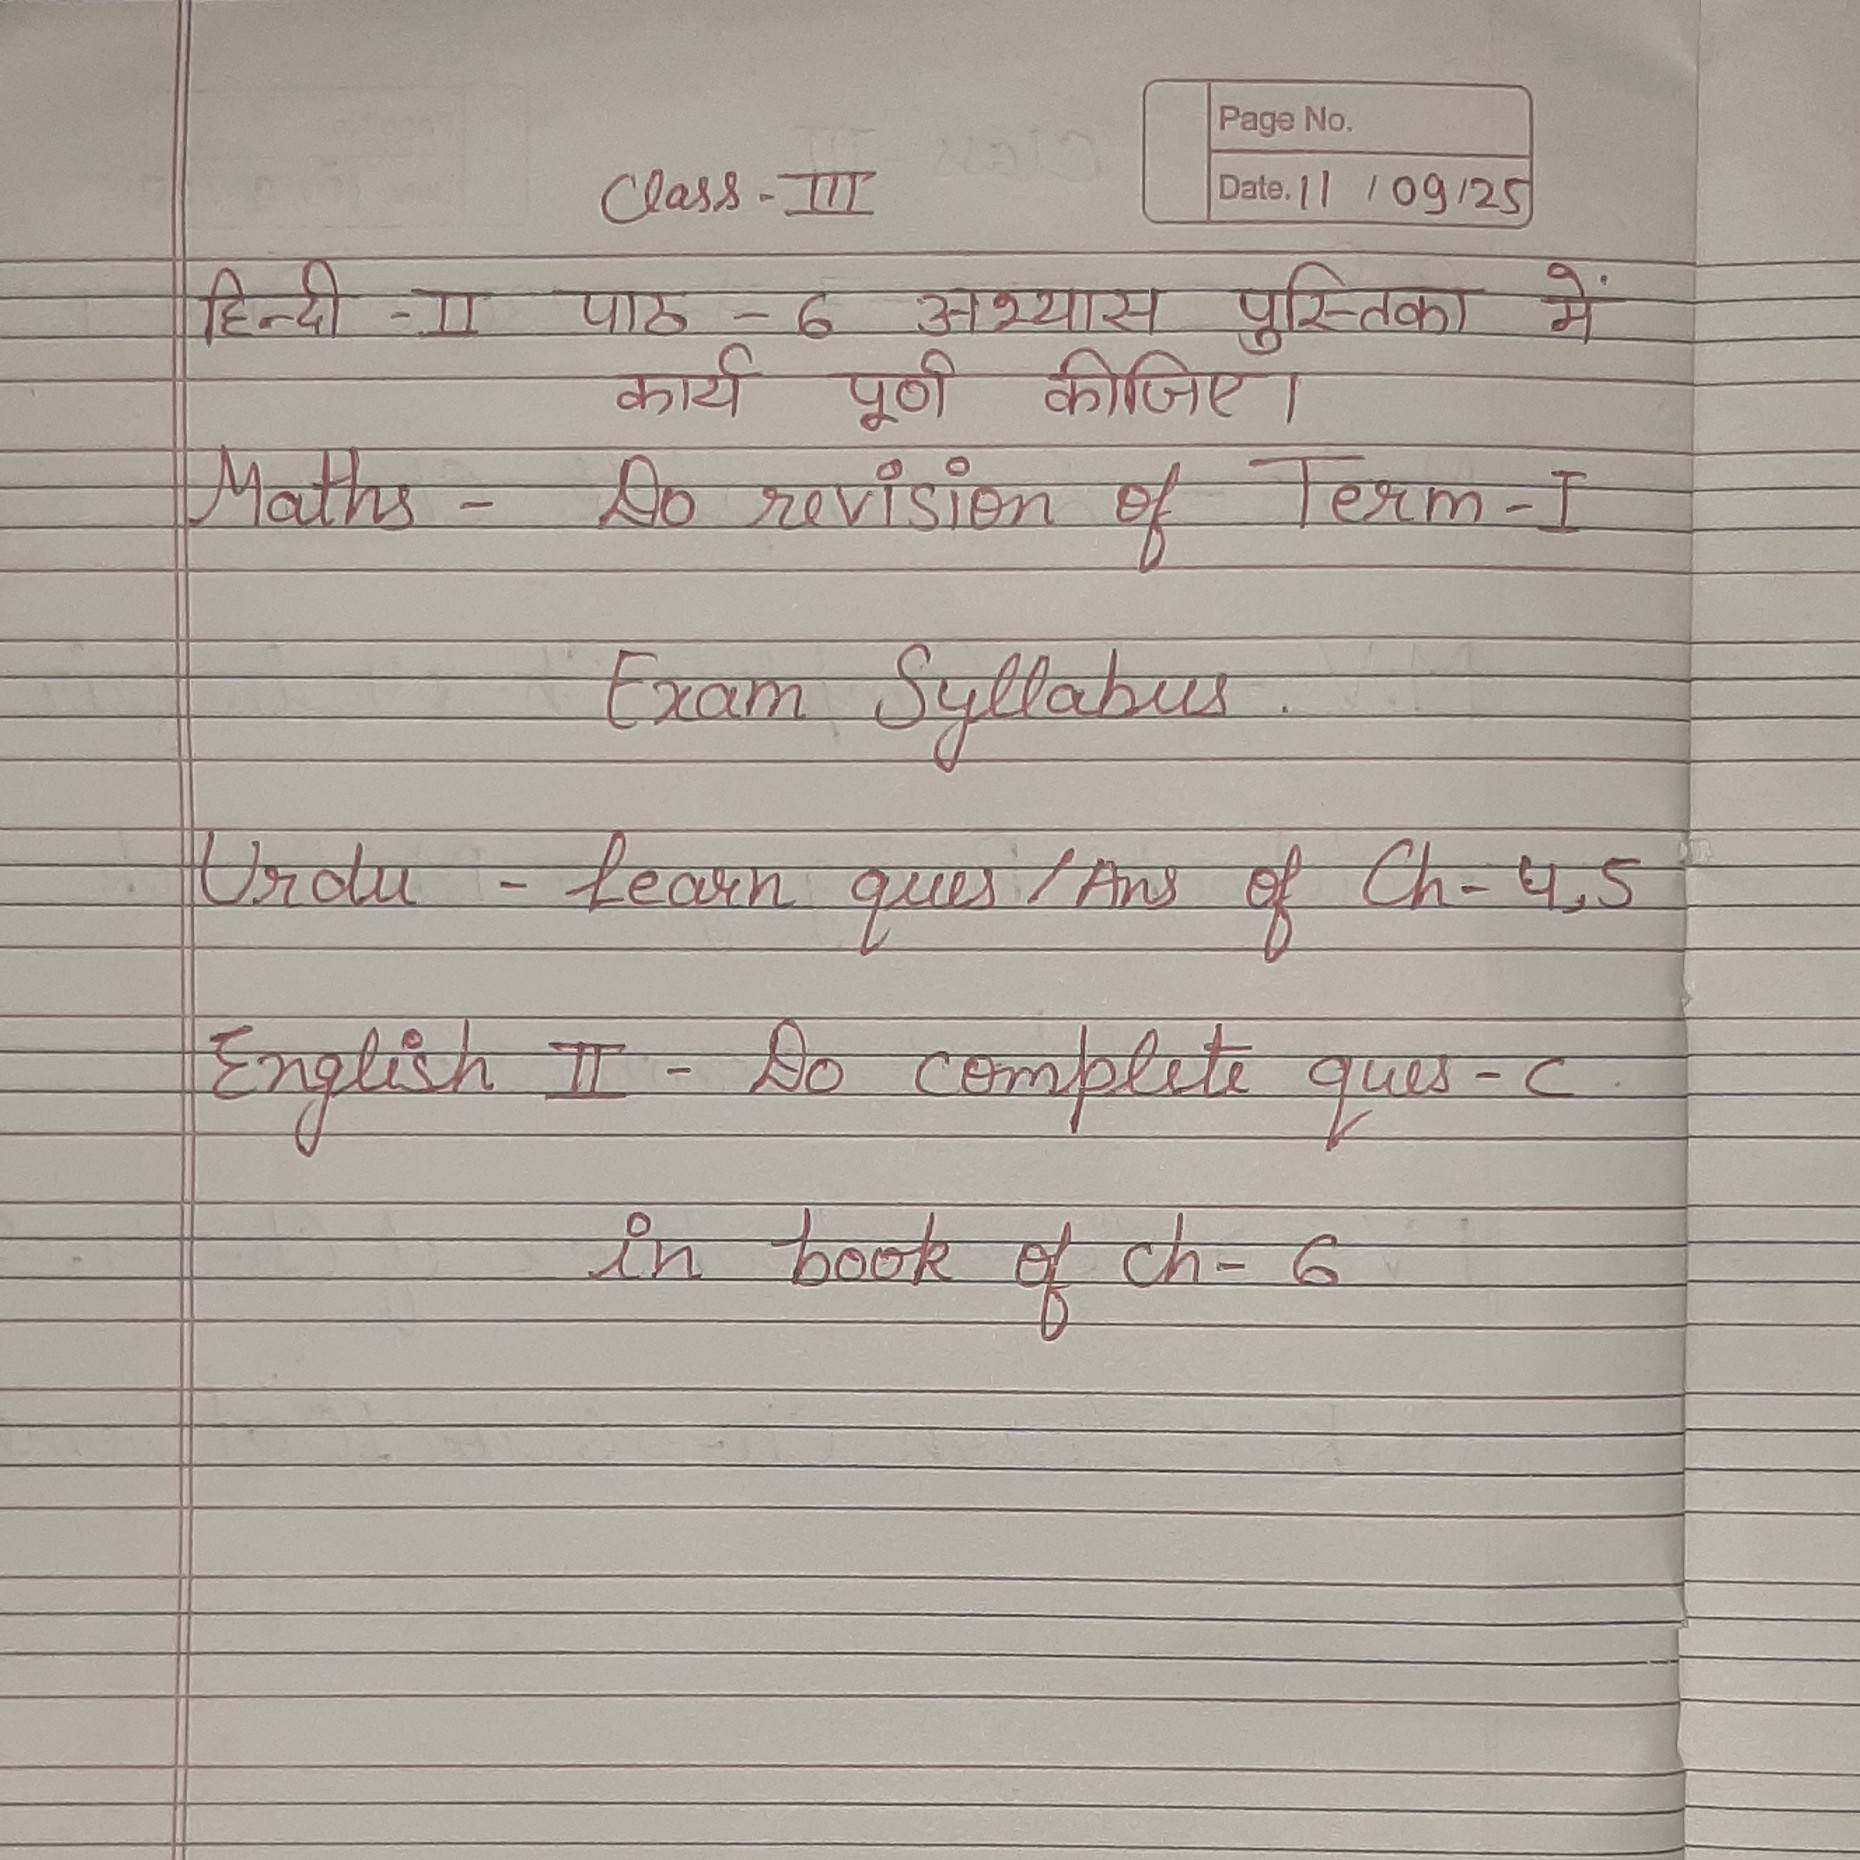 Page No.
Class - III
Date. 11 / 09/25
हिन्दी - II पाठ - 6 अभ्यास पुस्तिका में
कार्य पूर्ण कीजिए।
Maths - Do revision of Term - I
Exam Syllabus.
Urdu - Learn ques / Ans of Ch - 4,5
English II - Do complete ques - C.
in book of ch - 6